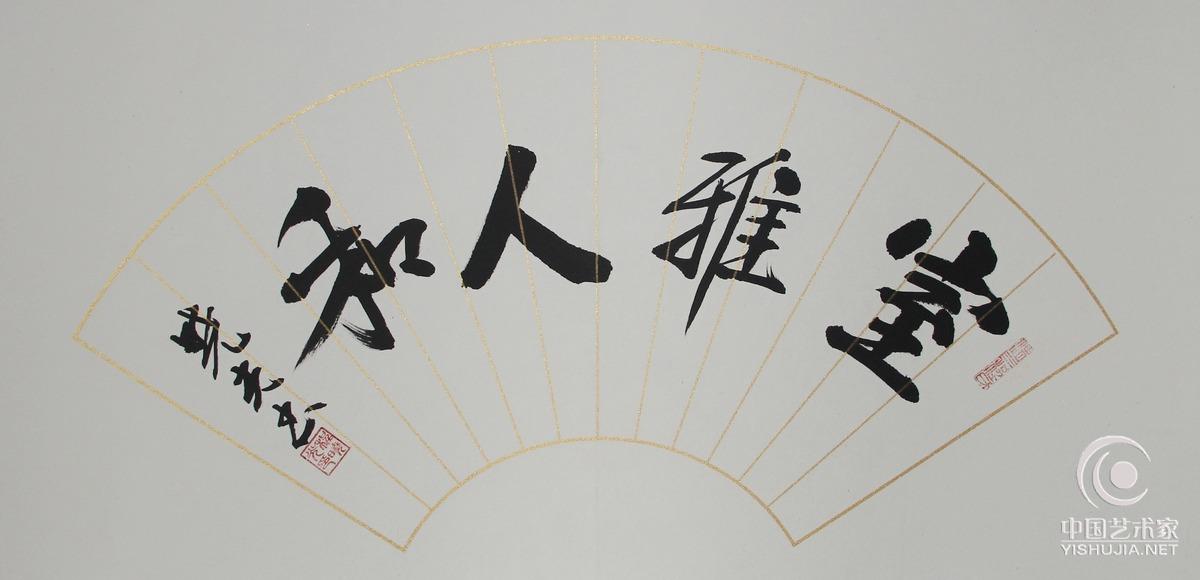 室雅人和
光书
中国艺术家
YISHUJIA.NET